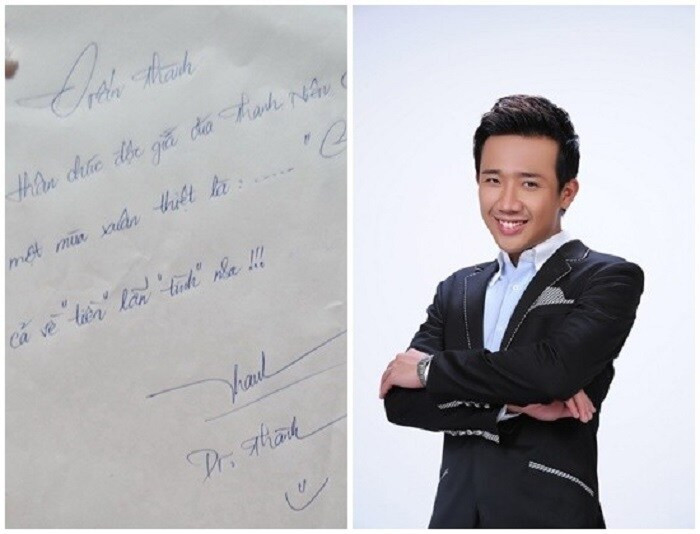 Trấn Thành
thân chúc độc giả của Thanh Niên
một mùa xuân thiệt là : ..... "
cả về "tiền" lẫn "tình" nữa !!!
Thành
Tr. Thành